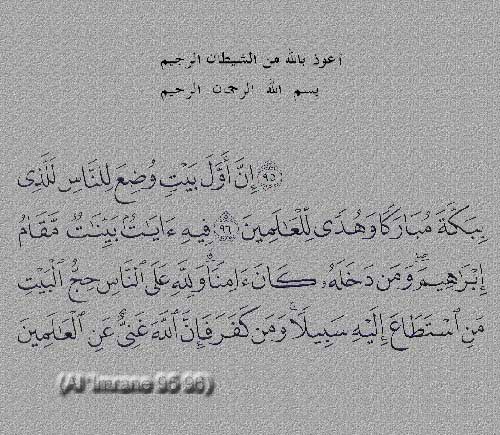 أعوذ بالله من الشيطان الرجيم
بسم الله الرحمن الرحيم
٩٥ إِنَّ أَوَّلَ بَيْتٍ وُضِعَ لِلنَّاسِ لَلَّذِى
بِبَكَّةَ مُبَارَكًا وَهُدًى لِّلْعَٰلَمِينَ ٩٦ فِيهِ ءَايَٰتٌۢ بَيِّنَٰتٌ مَّقَامُ
إِبْرَٰهِيمَۖ وَمَن دَخَلَهُۥ كَانَ ءَامِنًاۗ وَلِلَّهِ عَلَى ٱلنَّاسِ حِجُّ ٱلْبَيْتِ
مَنِ ٱسْتَطَاعَ إِلَيْهِ سَبِيلًاۚ وَمَن كَفَرَ فَإِنَّ ٱللَّهَ غَنِىٌّ عَنِ ٱلْعَٰلَمِينَ